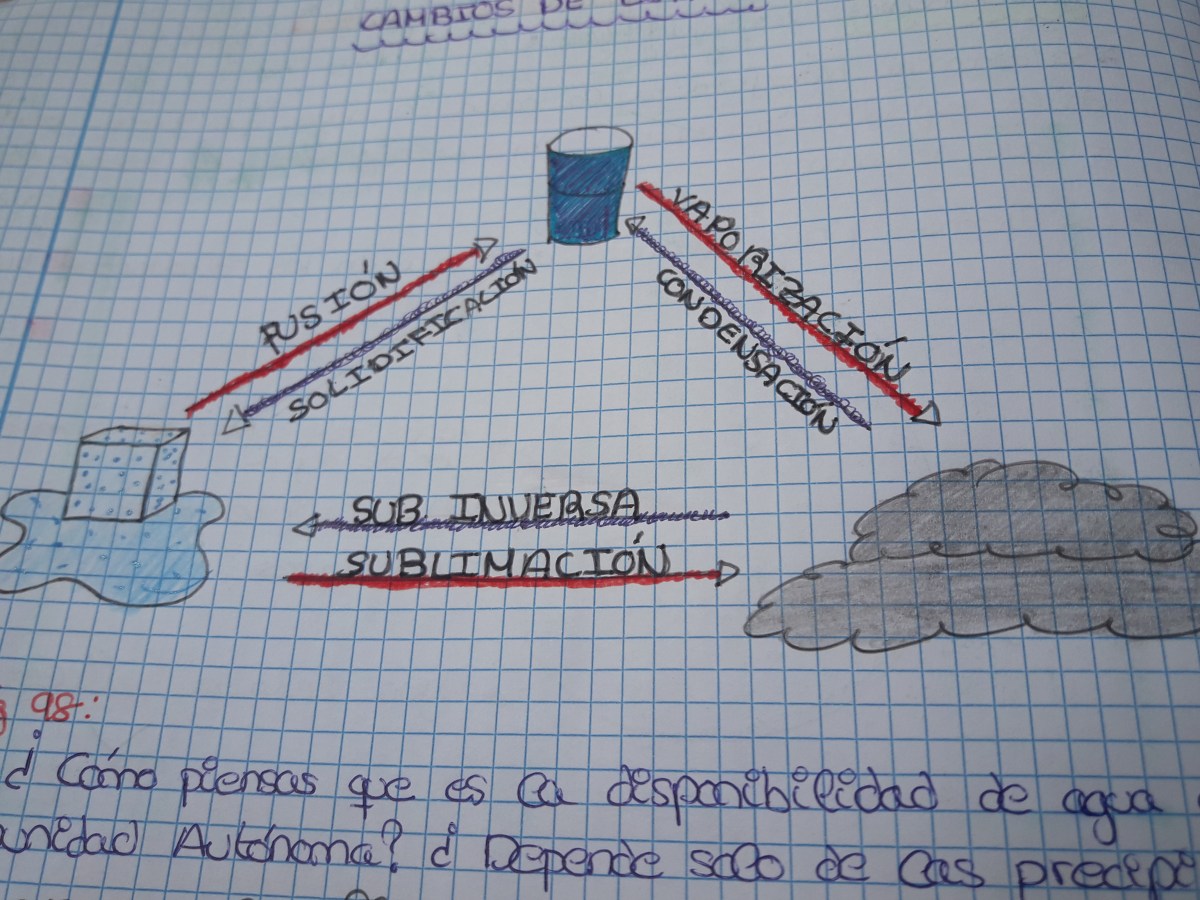 CAMBIOS DE
FUSIÓN
SOLIDIFICACIÓN
VAPORIZACIÓN
CONDENSACIÓN
SUB. INVERSA
SUBLIMACIÓN
98:
¿Cómo piensas que es la disponibilidad de agua
Autónoma? ¿Depende solo de las